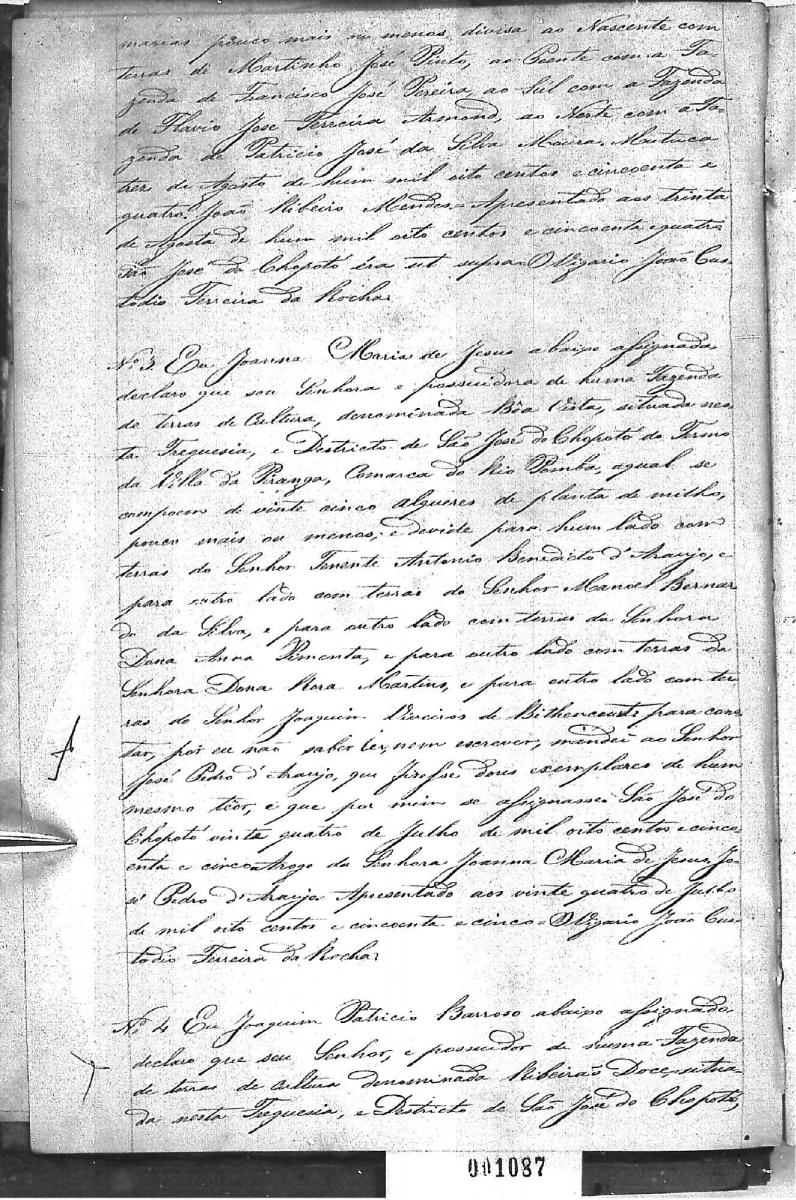 marias pouco mais ou menos, divisa ao Nascente com
terras de Martinho José Pinto, ao Poente com a Fa-
zenda de Francisco José Pereira, ao Sul com a Fazenda
de Flavio José Ferreira Armond, ao Norte com a Fa-
zenda de Patricio José da Silva Moira, Mutuca
tres de Agosto de hum mil oito centos e cincoenta e
quatro. João Ribeiro Mendes = Apresentado aos trinta
de Agosto de hum mil oito centos e cincoenta e quatro
São José do Chopotó éra ut supra = O Vigario João Cus-
todio Ferreira da Rocha
Nº 3. Eu Joanna Maria de Jesus abaixo assignada
declaro que sou Senhora e possuidora de huma Fazenda
de terras de Cultura, denominada Bôa Vista, situada nes-
ta Freguesia, e Districto de São José do Chopotó do Termo
da Villa da Piranga, Comarca do Rio Pomba, aqual se
compoem de vinte cinco alqueres de planta de milho,
pouco mais ou menos, e devide para hum lado com
terras do Senhor Tenente Antonio Benedicto d'Araujo, e
para outro lado com terras do Senhor Manoel Bernar
do da Silva, e para outro lado com terras da Senhora
Dona Anna Pimenta, e para outro lado com terras da
Senhora Dona Rosa Martins, e para outro lado com ter-
ras do Senhor Joaquim Viveiros de Bithencourt; para cons-
tar, por eu não saber ler, nem escrever, mandei ao Senhor
José Pedro d'Araujo, que fizesse dous exemplares de hum
mesmo têor, e que por mim se assignasse. São José do
Chopotó vinte quatro de Julho de mil oito centos e cinco-
enta e cinco = Arogo da Senhora Joanna Maria de Jesus, Jo-
sé Pedro d'Araujo. Apresentado aos vinte quatro de Julho
de mil oito centos e cincoenta e cinco = O Vigario João Cus-
todio Ferreira da Rocha
Nº 4 Eu Joaquim Patricio Barroso abaixo assignado
declaro que sou Senhor, e possuidor de huma Fazenda
de terras de cultura denominada Ribeirão Doce, situa
da nesta Freguesia, e Districto de São José do Chopotó,
001087